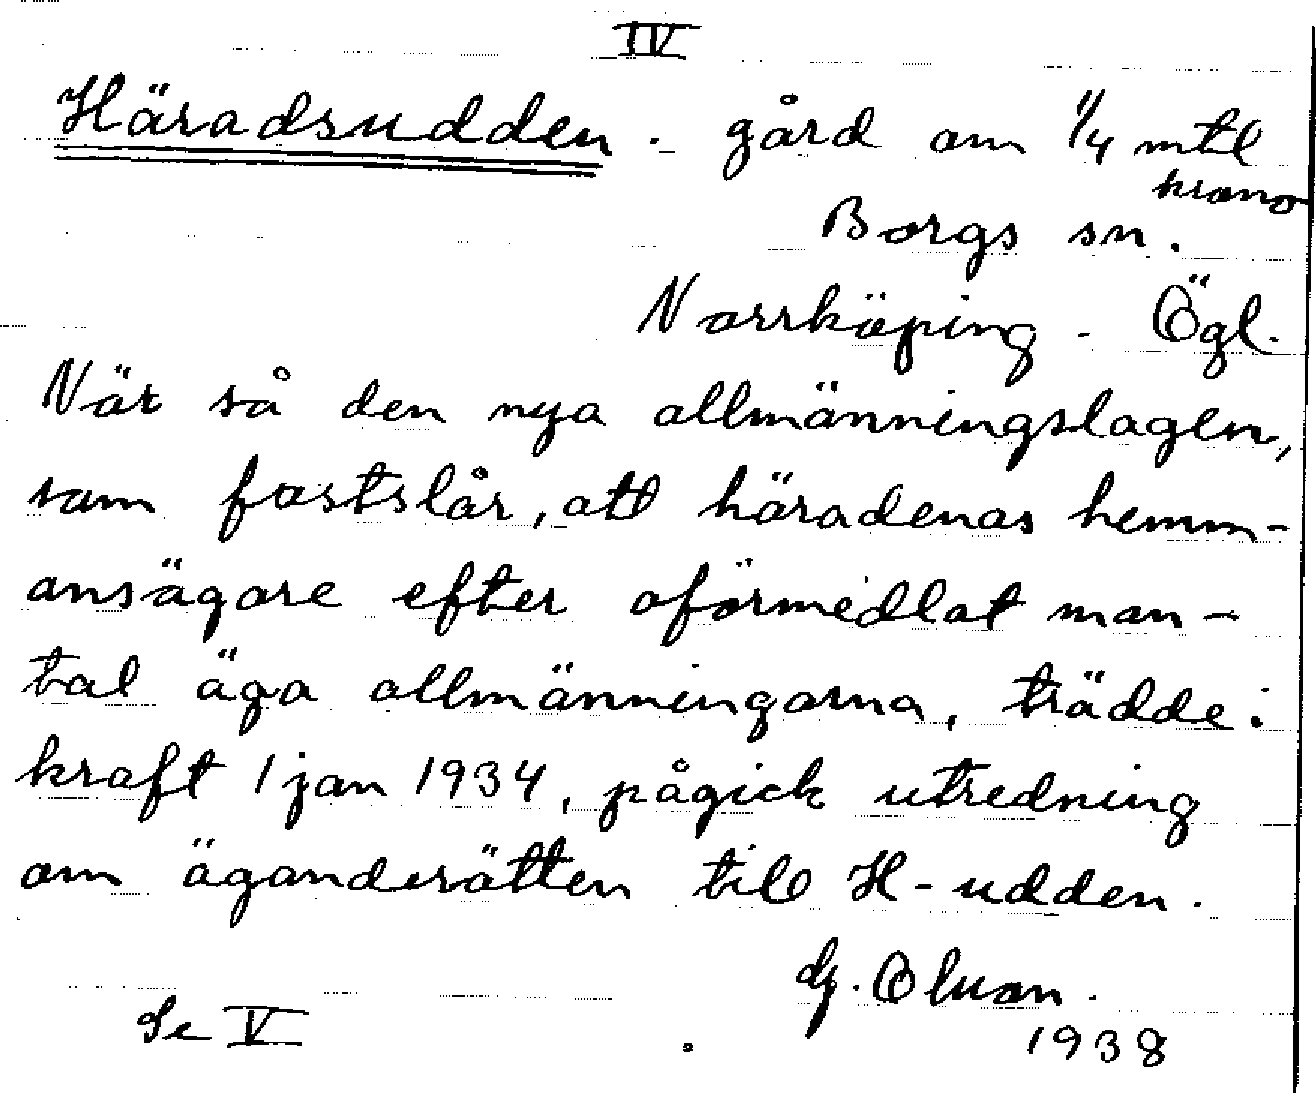 IV
Häradsudden - gård om 1/4 mtl
krono
Borgs sn.
Norrköping - Ögl.
När så den nya allmänningslagen,
som fastslår, att häradenas hemm-
ansägare efter oförmedlat man-
tal äga allmänningarna, trädde i
kraft 1 jan 1934, pågick utredning
om äganderätten till H-udden.
G.
Se V
1938